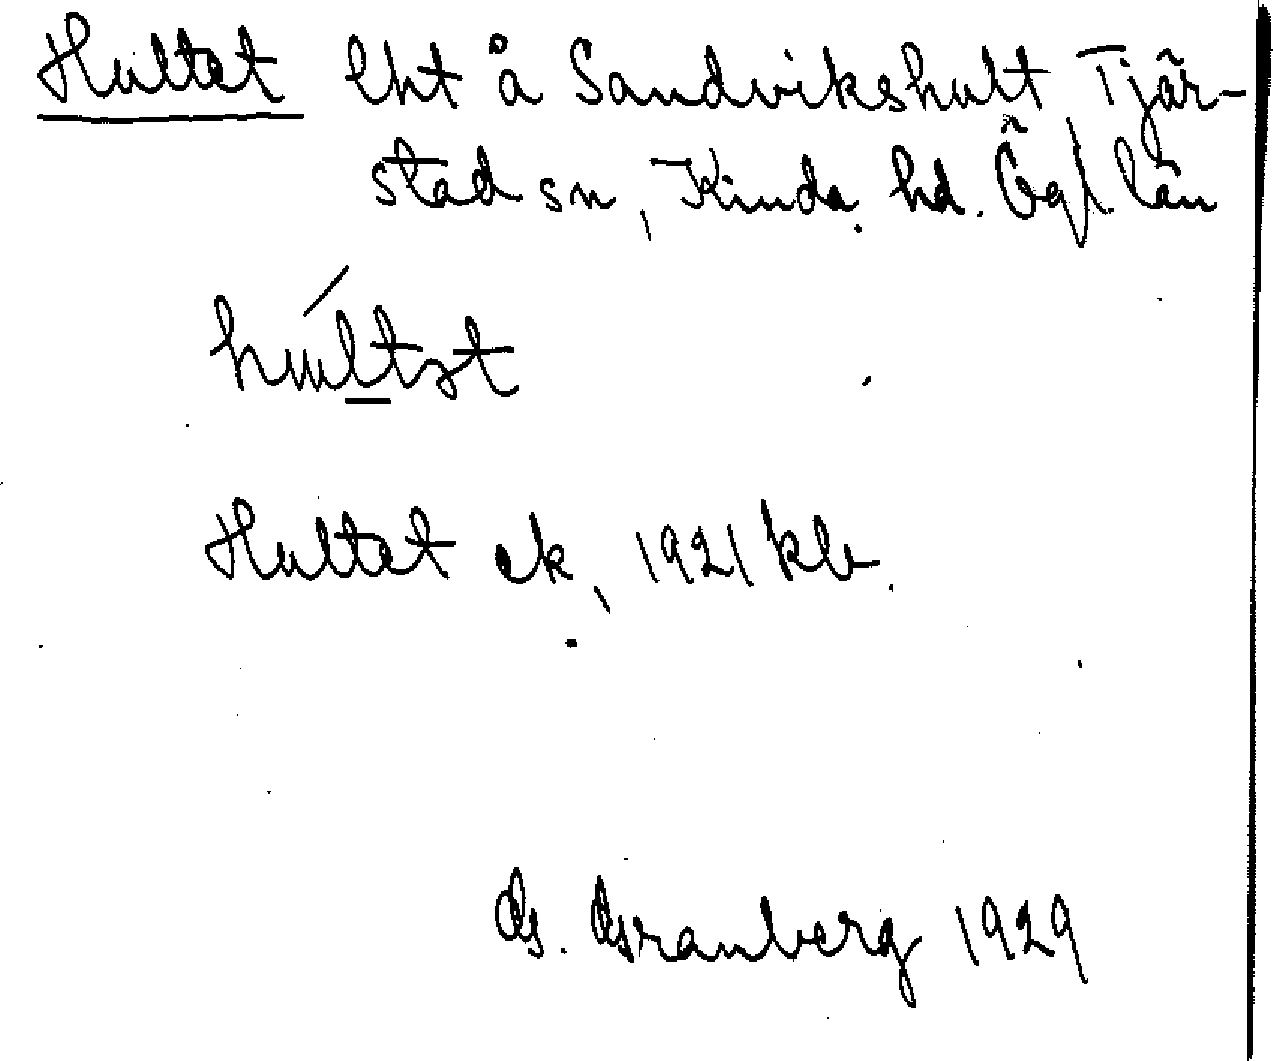 Hultet lht å Sandvikshult Tjär-
stad sn, Kinda hd. Ögl län
Hultet ek, 1921 klv.
G. Granberg 1929